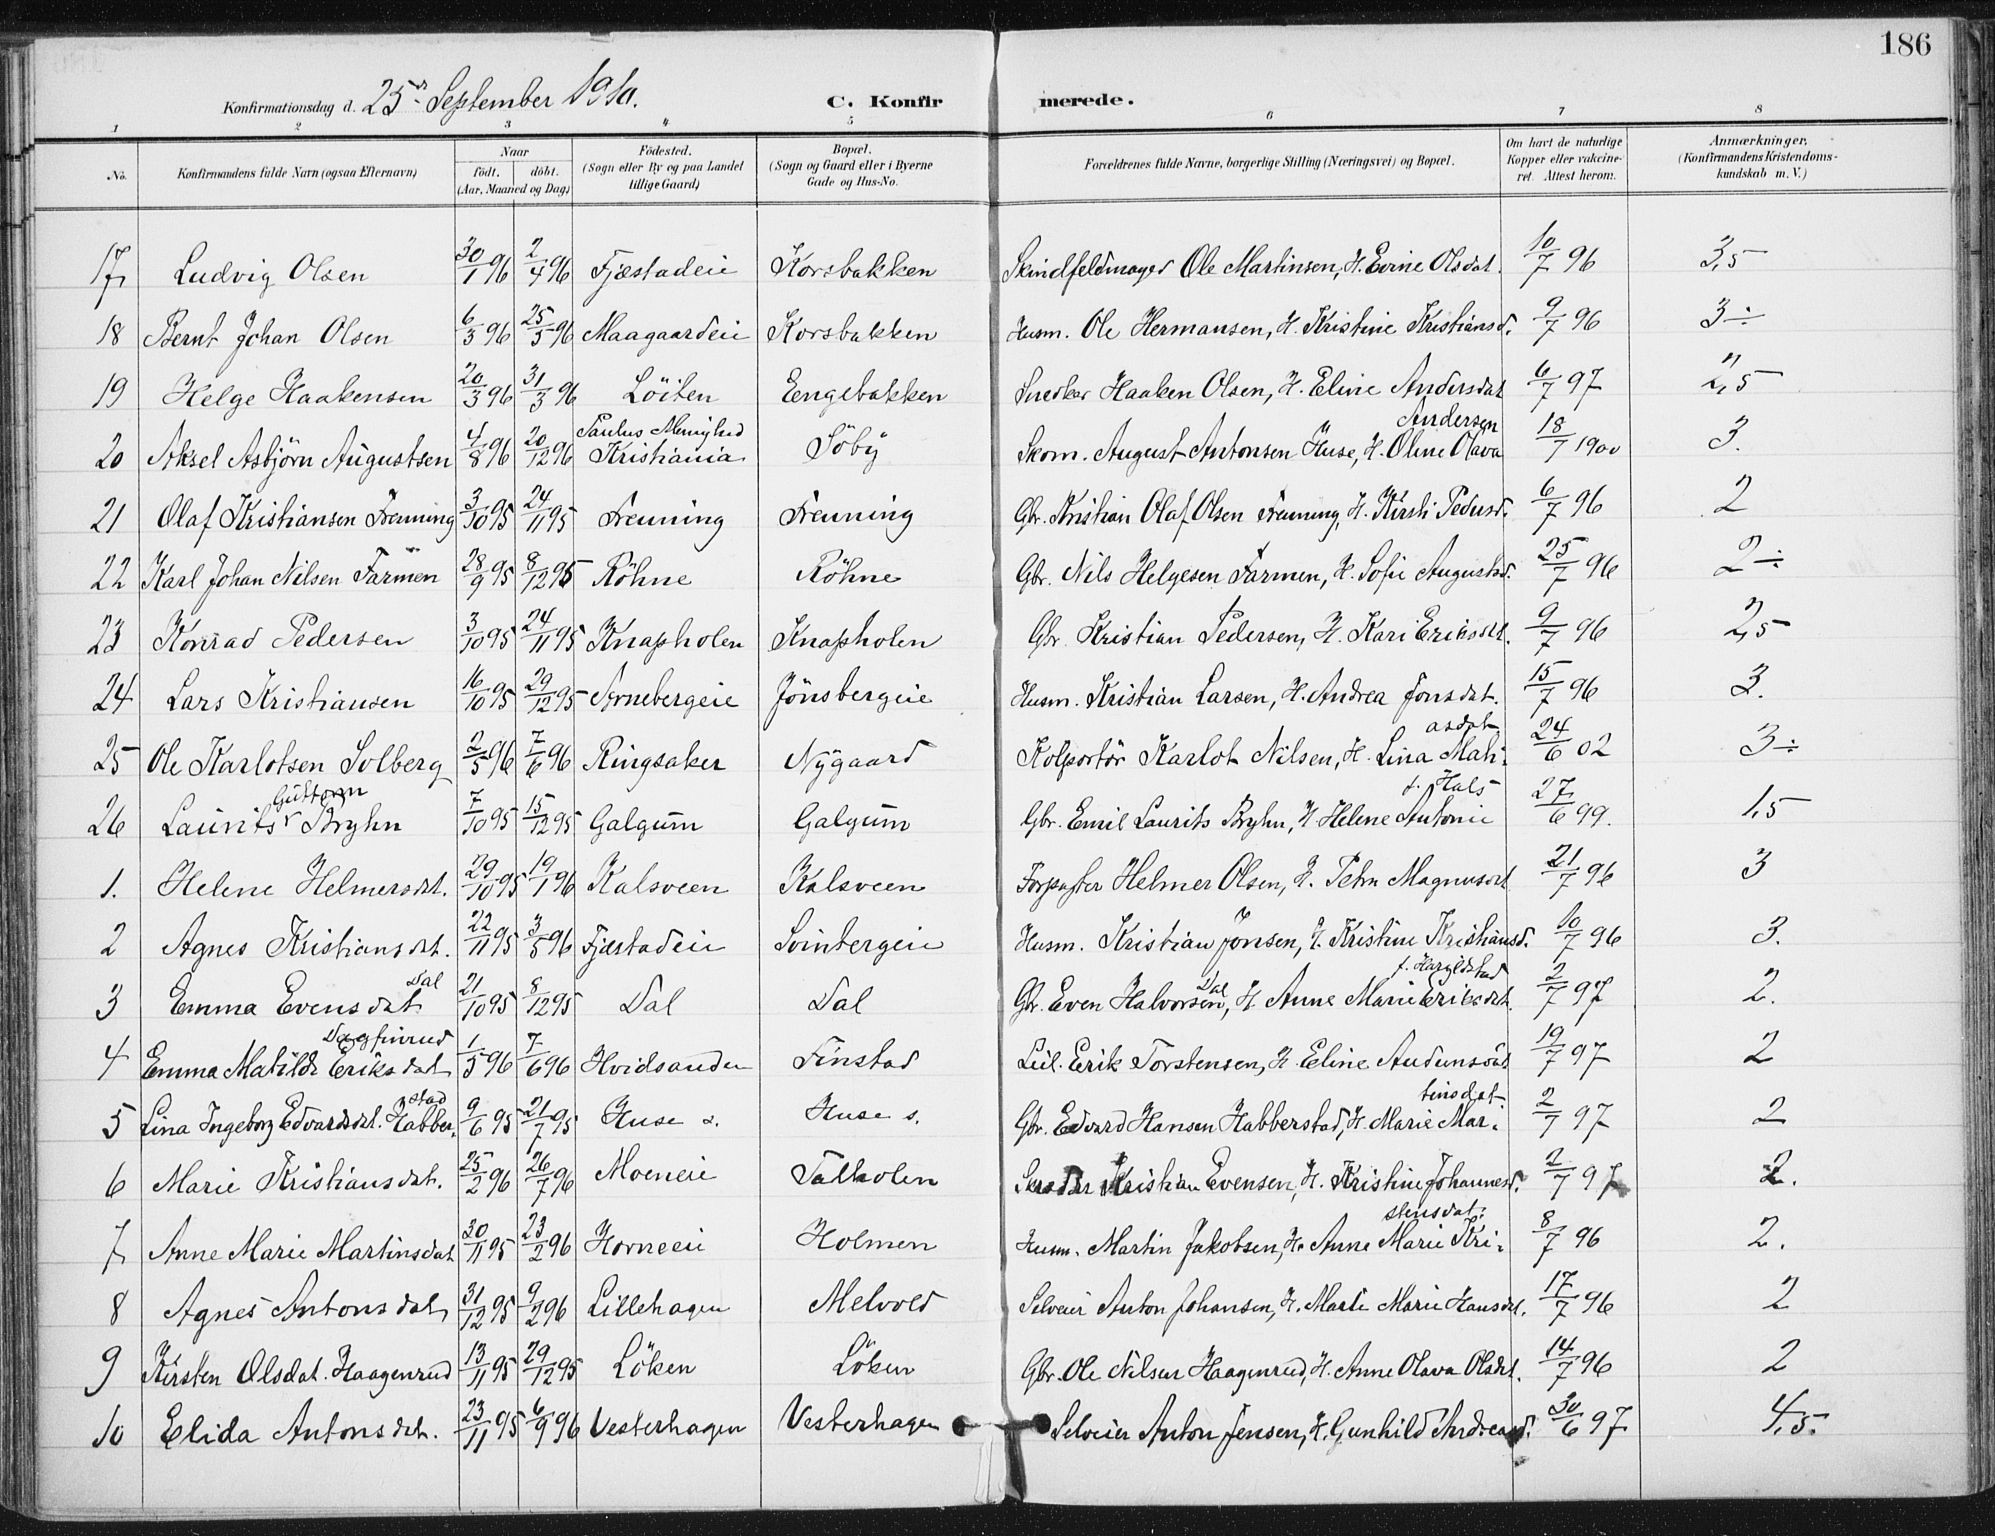 186
Konfirmationsdag d. 25de September 1910. C. Konfirmerede.
1 2 3 4 5 6 7 8
No. Konfirmandens fulde Navn (ogsaa Efternavn) Naar født. døbt. (Aar, Maaned og Dag) Fødested. (Sogn eller By og paa Landet tillige Gaard) Bopæl. (Sogn og Gaard eller i Byerne Gade og Hus-No. Forældrenes fulde Navne, borgerlige Stilling (Næringsvei) og Bopæl. Om havt de naturlige Kopper eller vaccineret. Attest herom. Anmærkninger. (Konfirmandens Kristendomskundskab m. V.)
17 Ludvig Olsen 30/1 96 2/4 96 Fjæstadeie Korsbakken Skindfeldmager Ole Martinsen, H. Evine Olsdat. 10/7 96 3,5
18 Bernt Johan Olsen 6/3 96 25/5 96 Maagaardeie Korsbakken Husm. Ole Hermansen, H. Kristine Kristiansd. 9/7 96 3÷
19 Helge Haakensen 20/3 96 31/3 96 Löiten Eengebakken Snedker Haaken Olsen, H. Eline Andersdat 6/7 97 2,5
20 Aksel Asbjörn Augustsen 4/8 96 20/12 96 Paulus Menighed Kristiania Söby Skom. August Antonsen Huse, H. Oline Olava Andersen 18/7 1900 3.
21 Olaf Kristiansen Frenning 3/10 95 24/11 95 Frenning Frenning Gbr. Kristian Olaf Olsen Frenning, H. Kirsti Pedersd. 6/7 96 2
22 Karl Johan Nilsen Farmen 28/9 95 8/12 95 Röhne Röhne Gbr. Nils Helgesen Farmen, H. Sofie Augustsd. 25/7 96 2÷
23 Konrad Pedersen 3/10 95 24/11 95 Knapholen Knapholen Gbr. Kristian Pedersen, H. Kari Eriksdt. 9/7 96 2,5
24 Lars Kristiansen 16/10 95 29/12 95 Arnebergeie Jönsbergeie Husm. Kristian Larsen, H. Andrea Jonsdat. 15/7 96 3.
25 Ole Karlotsen Solberg 2/5 96 7/6 96 Ringsaker Nygaard Kolportör Karlot Nilsen, H. Lina Mathiasdat 24/6 02 3÷
26 Laurits Guttorm Bryhn 7/10 95 15/12 95 Galgum Galgum Gbr. Emil Laurits Bryhn, H Helene Antonie f. Hals 27/6 99. 1,5
1. Helene Helmersdat. 29/10 95 19/1 96 Kalsveen Kalsveen Forpagter Helmer Olsen, H. Petra Magnusdt 21/7 96 3
2 Agnes Kristiansdat. 22/11 95 3/5 96 Fjæstadeie Svinbergeie Husm. Kristian Jonsen, H. Kristine Kristiansd. 10/7 96 3.
3 Emma Evensdat. Dal 21/10 95 8/12 95 Dal Dal Gbr. Even Halvorsen Dal, H Anne Marie Eriksdat. 2/7 97 2.
4 Emma Matilde Eriksdat Dagfinrud 1/5 96 7/6 96 Hvidsanden Finstad Leil. Erik Torstensen, H. Eline Audunsdat 19/7 97 2
5 Lina Ingeborg Edvardsdt. Habberstad 9/6 95 21/7 95 Huse s. Huse s. Gbr. Edvard Hansen Habberstad, H. Marie Martinsdat 2/7 97 2
6 Marie Kristiansdat. 25/2 96 26/7 96 Moeneie Falholen Kristian Evensen, H. Kristine Johannesd. 2/7 97 2.
7 Anne Marie Martinsdat 30/11 95 23/2 96 Horneeie Holmen Husm. Martin Jakobsen, H. Anne Marie Kristensdat. 8/7 96 2.
8 Agnes Antonsdat 31/12 95 9/2 96 Lillehagen Melvold Selveier Anton Johansen, H. Marte Marie Hansdt. 17/7 96 2
9 Kirsten Olsdat. Haagenrud 13/11 95 29/12 95 Löken Löken Gbr. Ole Nilsen Haagenrud, H. Anne Olava Olsdt. 14/7 96 2
10 Elida Antonsdat. 23/11 95 6/9 96 Vesterhagen Vesterhagen Selveier Anton Jensen, H. Gunhild Andreasd. 30/6 97 4,5.